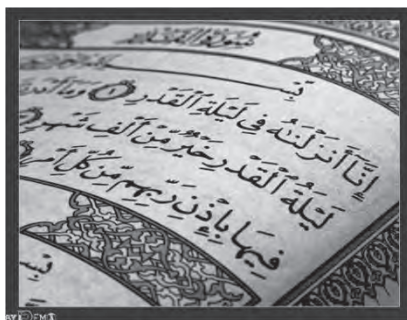 سُورَةُ الْقَدْرِ
بِسْمِ
إِنَّا أَنزَلْنَٰهُ فِى لَيْلَةِ ٱلْقَدْرِ ١ وَمَآ أَدْرَ
لَيْلَةُ ٱلْقَدْرِ خَيْرٌ مِّنْ أَلْفِ شَهْرٍ
فِيهَا بِإِذْنِ رَبِّهِم مِّن كُلِّ أَمْرٍ